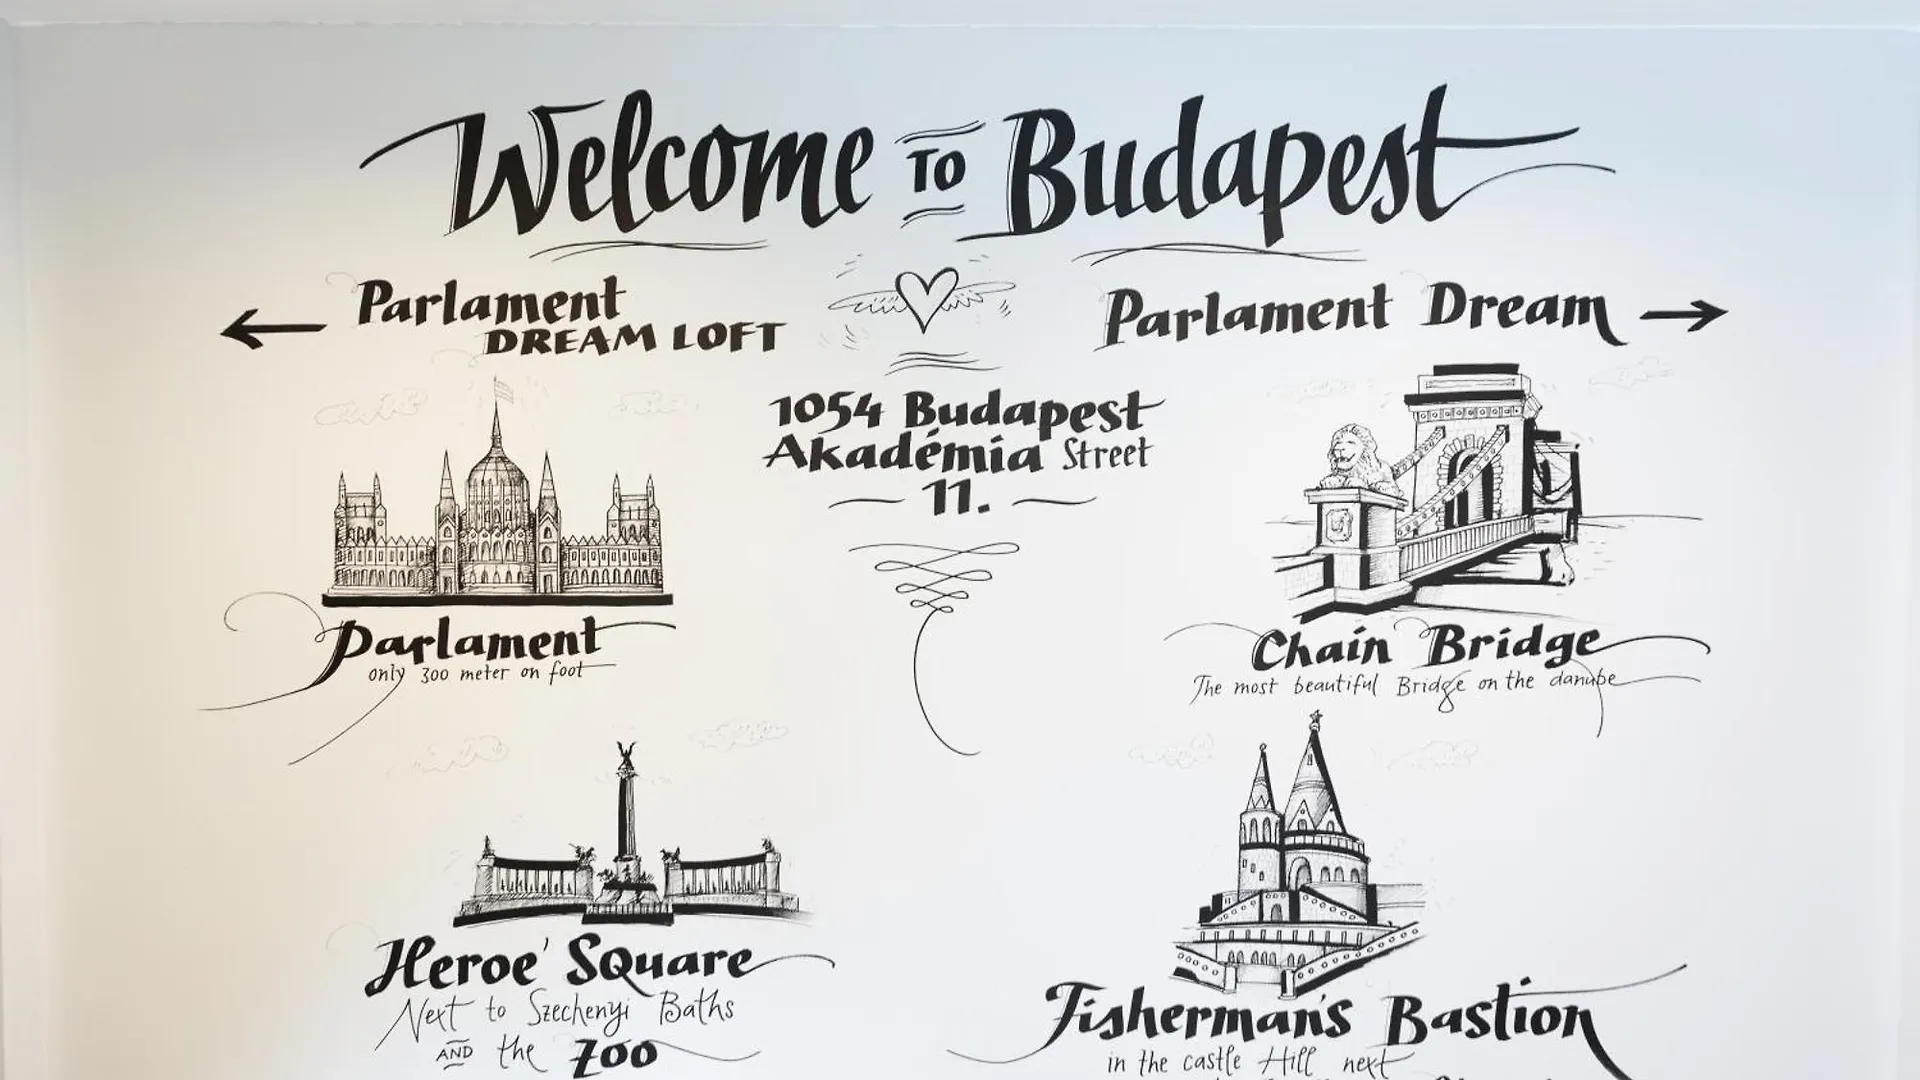 Welcome TO Budapest
Parlament
DREAM LOFT
Parlament Dream
1054 Budapest
Akadémia Street
11.
Parlament
only 300 meter on foot
Chain Bridge
The most beautiful Bridge on the danube
Heroe' Square
Next to Szechenyi Baths
AND the Zoo
Fisherman's Bastion
in the castle Hill next